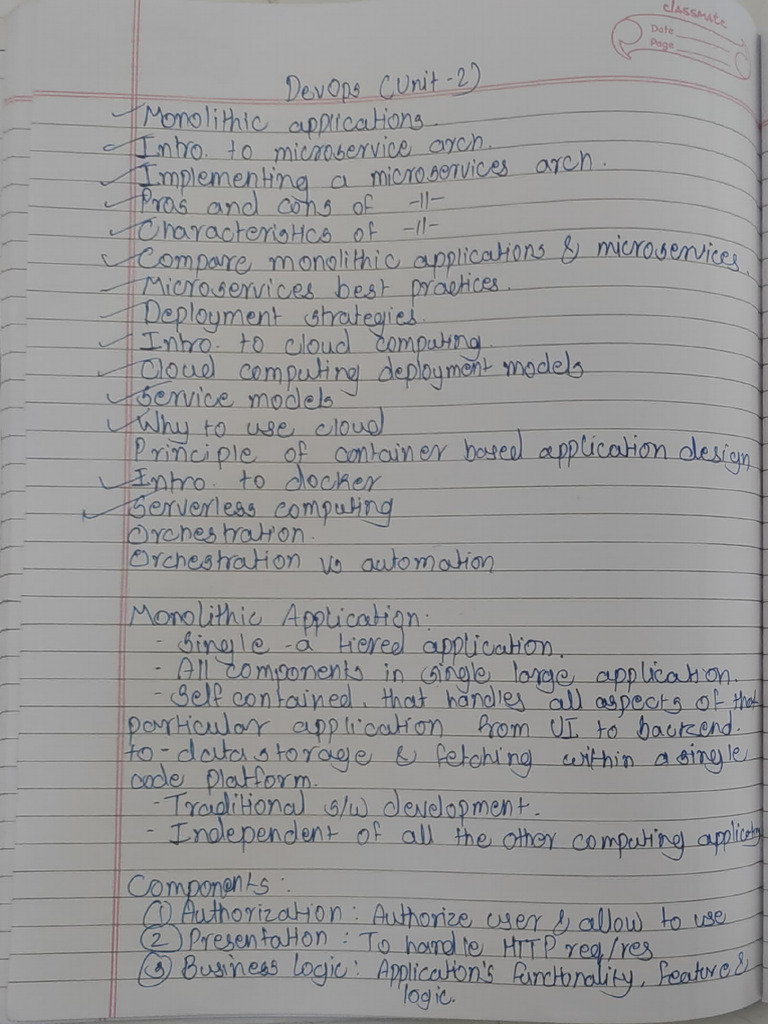 classmate
Date
Page
DevOps (Unit-2)
Monolithic applications.
Intro. to microservice arch.
Implementing a microservices arch.
Pros and cons of -11-
Characteristics of -11-
Compare monolithic applications & microservices.
Microservices best practices.
Deployment strategies.
Intro. to cloud computing.
Cloud computing deployment models
Service models
Why to use cloud
Principle of container based application design
Intro. to docker
Serverless computing
Orchestration.
Orchestration vs automation
Monolithic Application:
- Single -a tiered application.
- All components in single large application.
- Self contained, that handles all aspects of that
particular application from UI to backend.
to - data storage & fetching within a single
code platform.
- Traditional s/w development.
- Independent of all the other computing applicatn
Components:
① Authorization: Authorize user & allow to use
② Presentation: To handle HTTP req/res
③ Business logic: Application's functionality, feature &
logic.